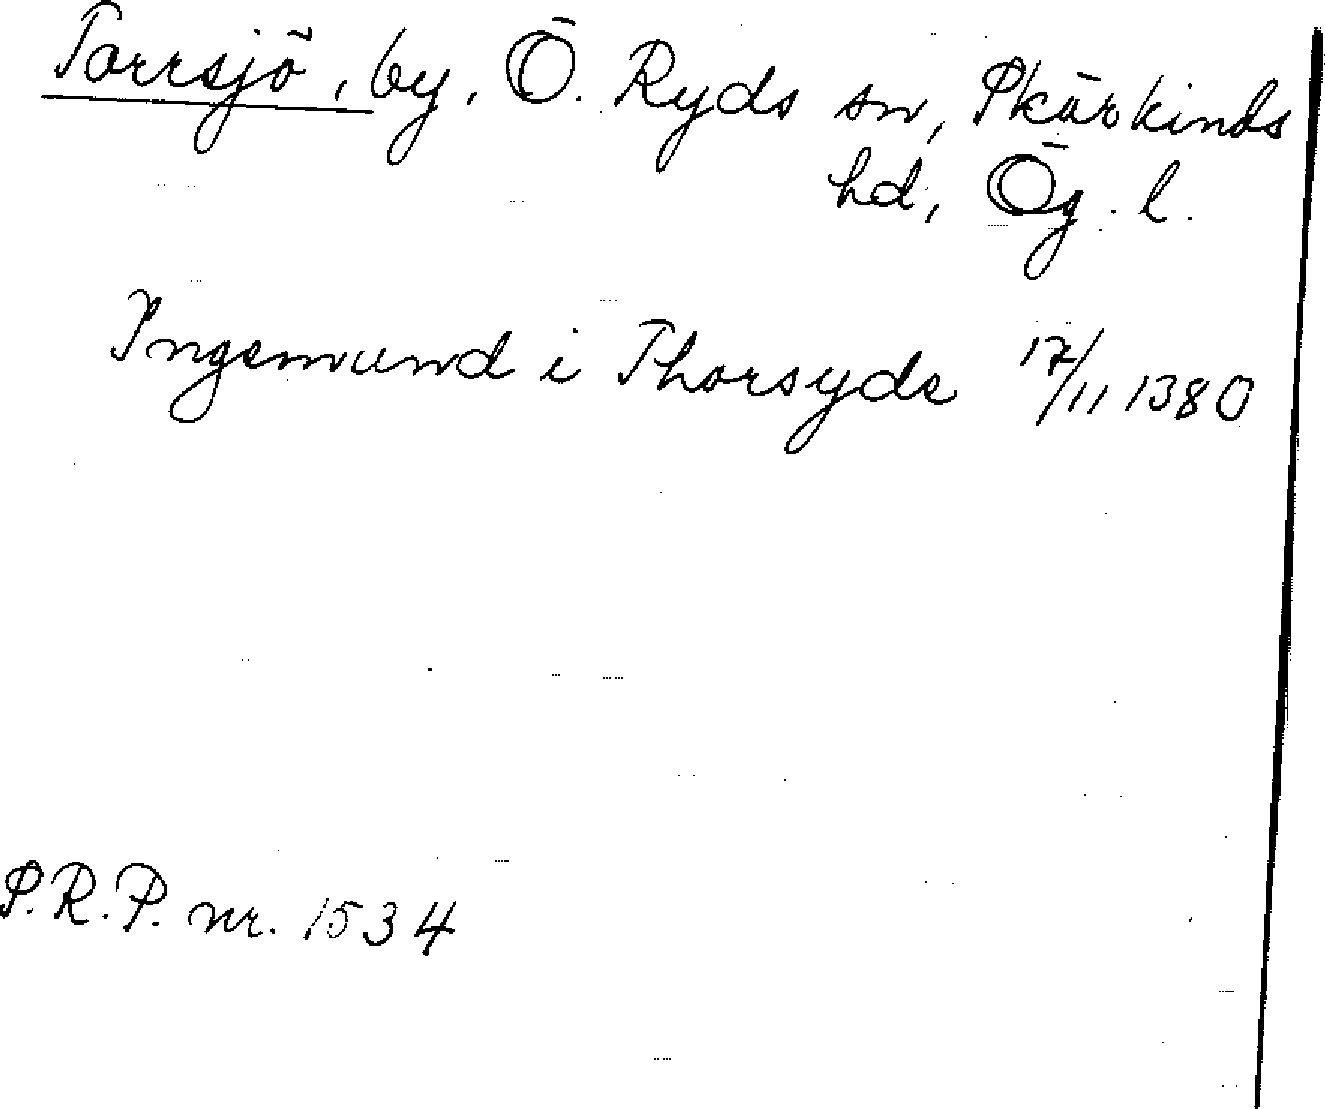 Torrsjö, by, Ö. Ryds sn, Skärkinds
hd, Ög. l.
Ingemund i Thorsyde 17/11 1380
S.R.P. nr. 1534